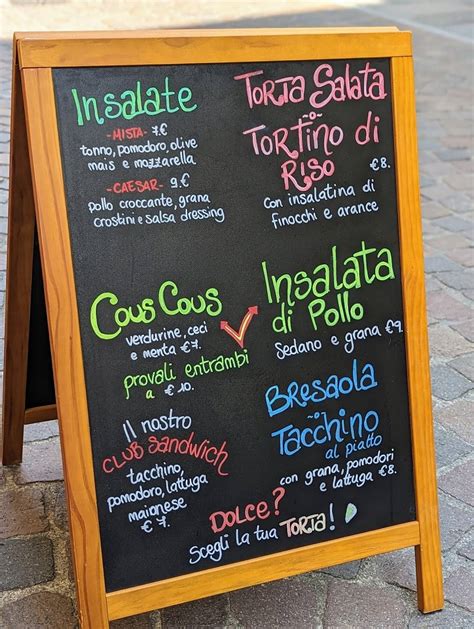 Insalate
-MISTA- 7.€
tonno, pomodoro, olive
mais e mozzarella
-CAESAR- 9.€
pollo croccante, grana
crostini e salsa dressing
Cous Cous
verdurine, ceci
e menta €7.
provali entrambi
a €10.
Il nostro
CLUB SANDWICH
tacchino,
pomodoro, lattuga
maionese
€7.
TORTA Salata
~o~
TORTINO di
RISO €8.
con insalatina di
finocchi e arance
Insalata
di Pollo
Sedano e grana €9.
BRESAOLA
~o~
TACCHINO
al piatto
con grana, pomodori
e lattuga €8.
DOLCE?
Scegli la tua TORTA!